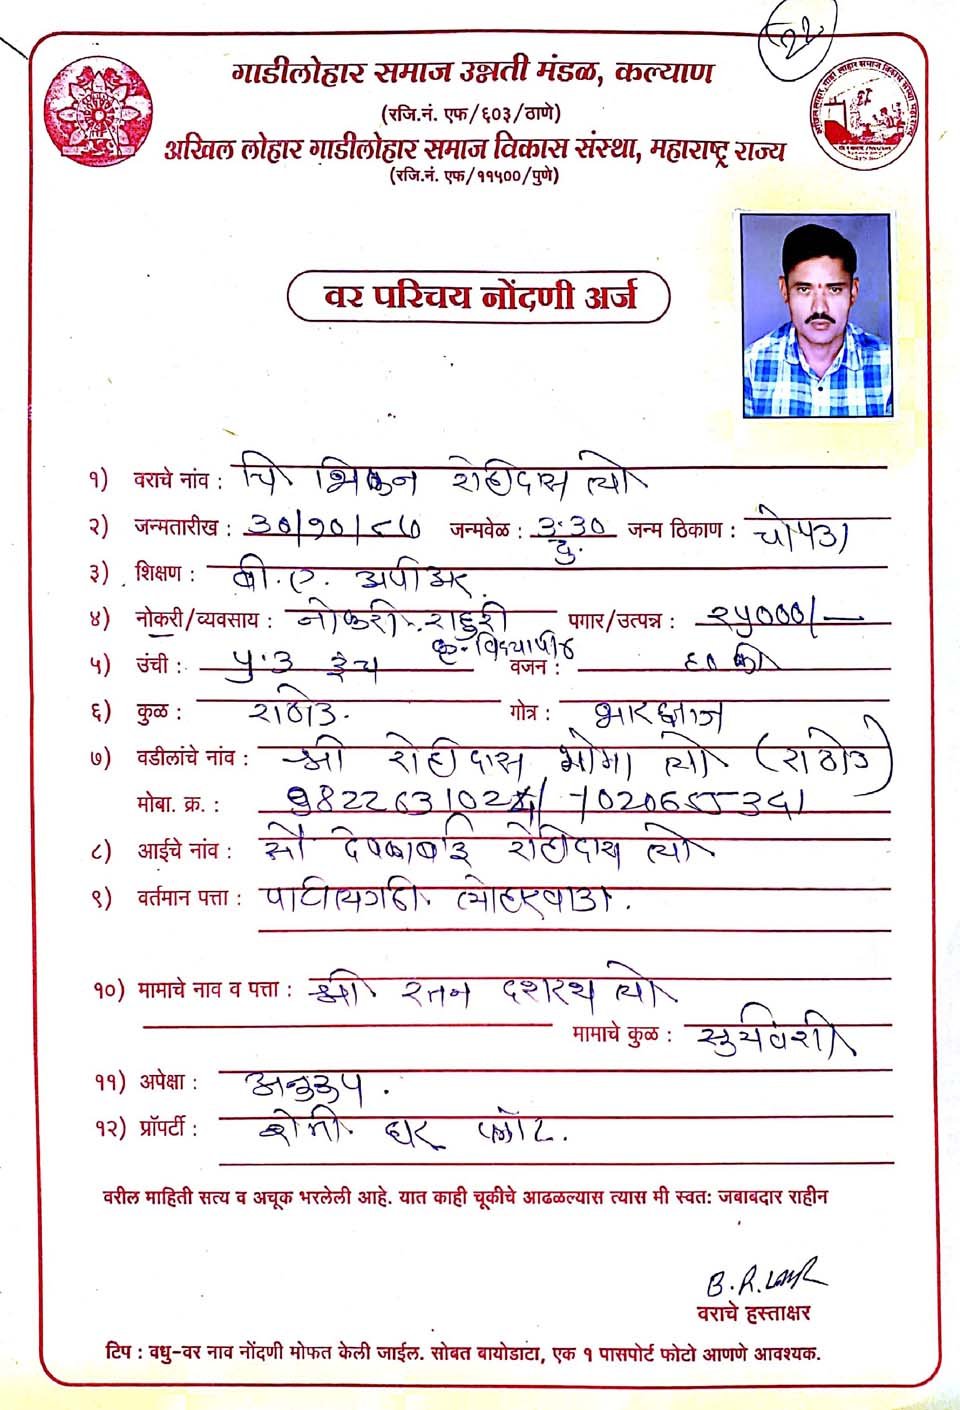 २२
गाडीलोहार समाज उन्नती मंडळ, कल्याण
(रजि.नं. एफ/६०३/ठाणे)
अखिल लोहार गाडीलोहार समाज विकास संस्था, महाराष्ट्र राज्य
(रजि.नं. एफ/११५००/पुणे)
वर परिचय नोंदणी अर्ज
१) वराचे नांव : चि भिकन रोहीदास लो
२) जन्मतारीख : ३०/१०/८७ जन्मवेळ : ३:३० दु. जन्म ठिकाण : चोपडा
३) शिक्षण : बी.ए. अपीअर
४) नोकरी/व्यवसाय : नोकरी. राहुरी कृ. विद्यापीठ पगार/उत्पन्न : २५०००/-
५) उंची : ५.३ इंच वजन : ६० की
६) कुळ : राठोड. गोत्र : भारद्वाज
७) वडीलांचे नांव : श्री रोहीदास भोमा लो (राठोड)
मोबा. क्र. :
८) आईचे नांव : सौ देवकाबाई रोहीदास लो
९) वर्तमान पत्ता : पाटीलगढी लोहारवाडा.
१०) मामाचे नाव व पत्ता : श्री रतन दशरथ लो
मामाचे कुळ : सुर्यवंशी
११) अपेक्षा : अनुरूप.
१२) प्रॉपर्टी : शेती घर प्लॉट.
वरील माहिती सत्य व अचूक भरलेली आहे. यात काही चूकीचे आढळल्यास त्यास मी स्वत: जबाबदार राहीन
B.R.
वराचे हस्ताक्षर
टिप : वधु-वर नाव नोंदणी मोफत केली जाईल. सोबत बायोडाटा, एक १ पासपोर्ट फोटो आणणे आवश्यक.